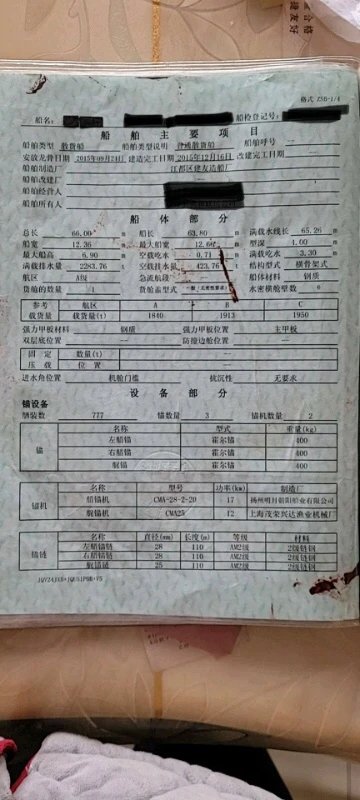 合格
捷友好
格式 XSB-1/4
船名: 船检登记号:
船舶主要项目
船舶类型 散货船 船舶类型说明 散货船 船舶呼号 —
安放龙骨日期 2015年09月24日 建造完工日期 2015年12月16日 改建完工日期 —
船舶制造厂 江都区建友造船厂
船舶改建厂 —
船舶经营人
船舶所有人
船体部分
总长 66.00 m 船长 63.80 m 满载水线长 65.26 m
船宽 12.36 m 最大船宽 12.66 m 型深 4.00 m
最大船高 6.90 m 空载吃水 0.71 m 满载吃水 3.30 m
满载排水量 2283.76 t 空载排水量 423.76 t 结构型式 横骨架式
航区 A级 急流航段 — 船体材料 钢质
货舱的数量 1 货舱盖型式 水密横舱型数 6
参考 航区 A B C
载货量 载货量(t) 1840 1913 1950
强力甲板材料 钢质 强力甲板位置 主甲板
双层底位置 — 防撞边舱位置 —
固定 数量(t) —
压载 位置 —
进水角位置 机舱门槛 抗沉性 无要求
设备部分
锚设备
舾装数 777 锚数量 3 锚机数量 2
名称 型式 重量(kg)
锚 左艏锚 霍尔锚 400
右艏锚 霍尔锚 400
艉锚 霍尔锚 400
名称 型号 功率(kw) 制造厂
锚机 艏锚机 CMA-28-2-20 17 扬州明月朝阳船业有限公司
艉锚机 CMA25 12 上海茂荣兴达渔业机械厂
名称 直径(mm) 长度(m) 等级 材料
锚链 左艏锚链 28 110 AM2级 2级链钢
右艏锚链 28 110 AM2级 2级链钢
艉锚链 25 110 AM2级 2级链钢